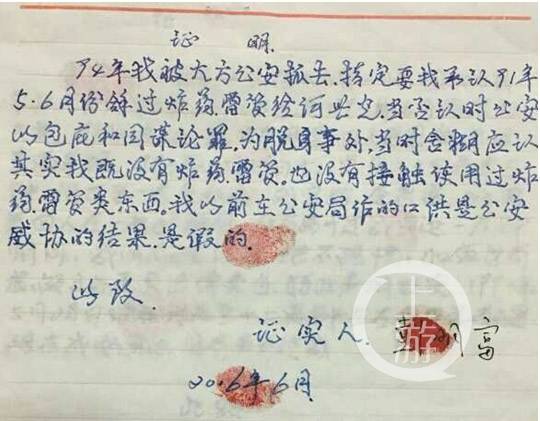 证 明
94年我被大方公安抓去.指定要我承认91年
5.6月份余过炸药.雷管给何业充.当否认时公安
以包庇和同谋论罪.为脱身事外.当时含糊应认
其实我既没有炸药.雷管.也没有接触使用过炸
药.雷管类东西.我以前在公安局作的口洪是公安
威协的结果.是假的.
此致.
证实人. 富
上游
2016年6月